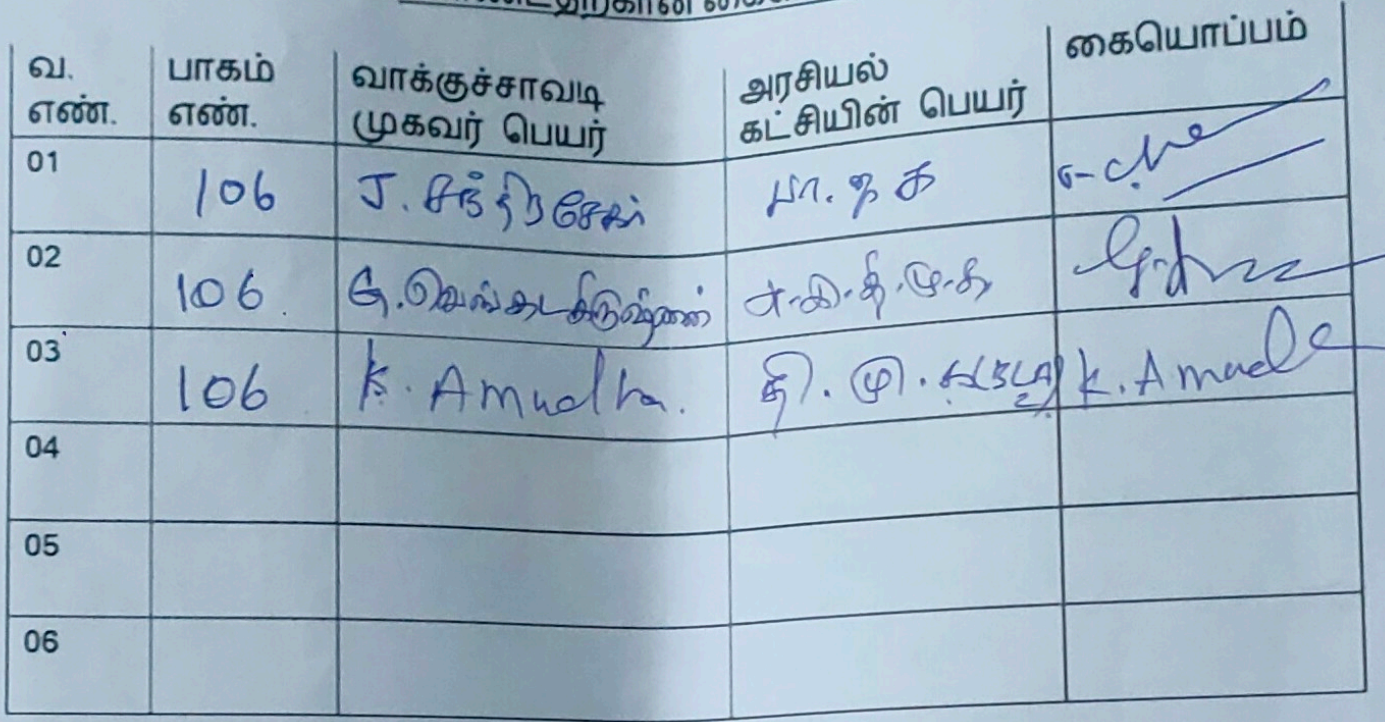 வ. எண். பாகம் எண். வாக்குச்சாவடி முகவர் பெயர் அரசியல் கட்சியின் பெயர் கையொப்பம்
01 106 J. சந்திரசேகர் பா. ஜ க
02 106 G. வெங்கடகிருஷ்ணன் அ.இ.தி.மு.க
03 106 K. Amudha. தி. மு. க (BLA2) K. Amudha
04
05
06